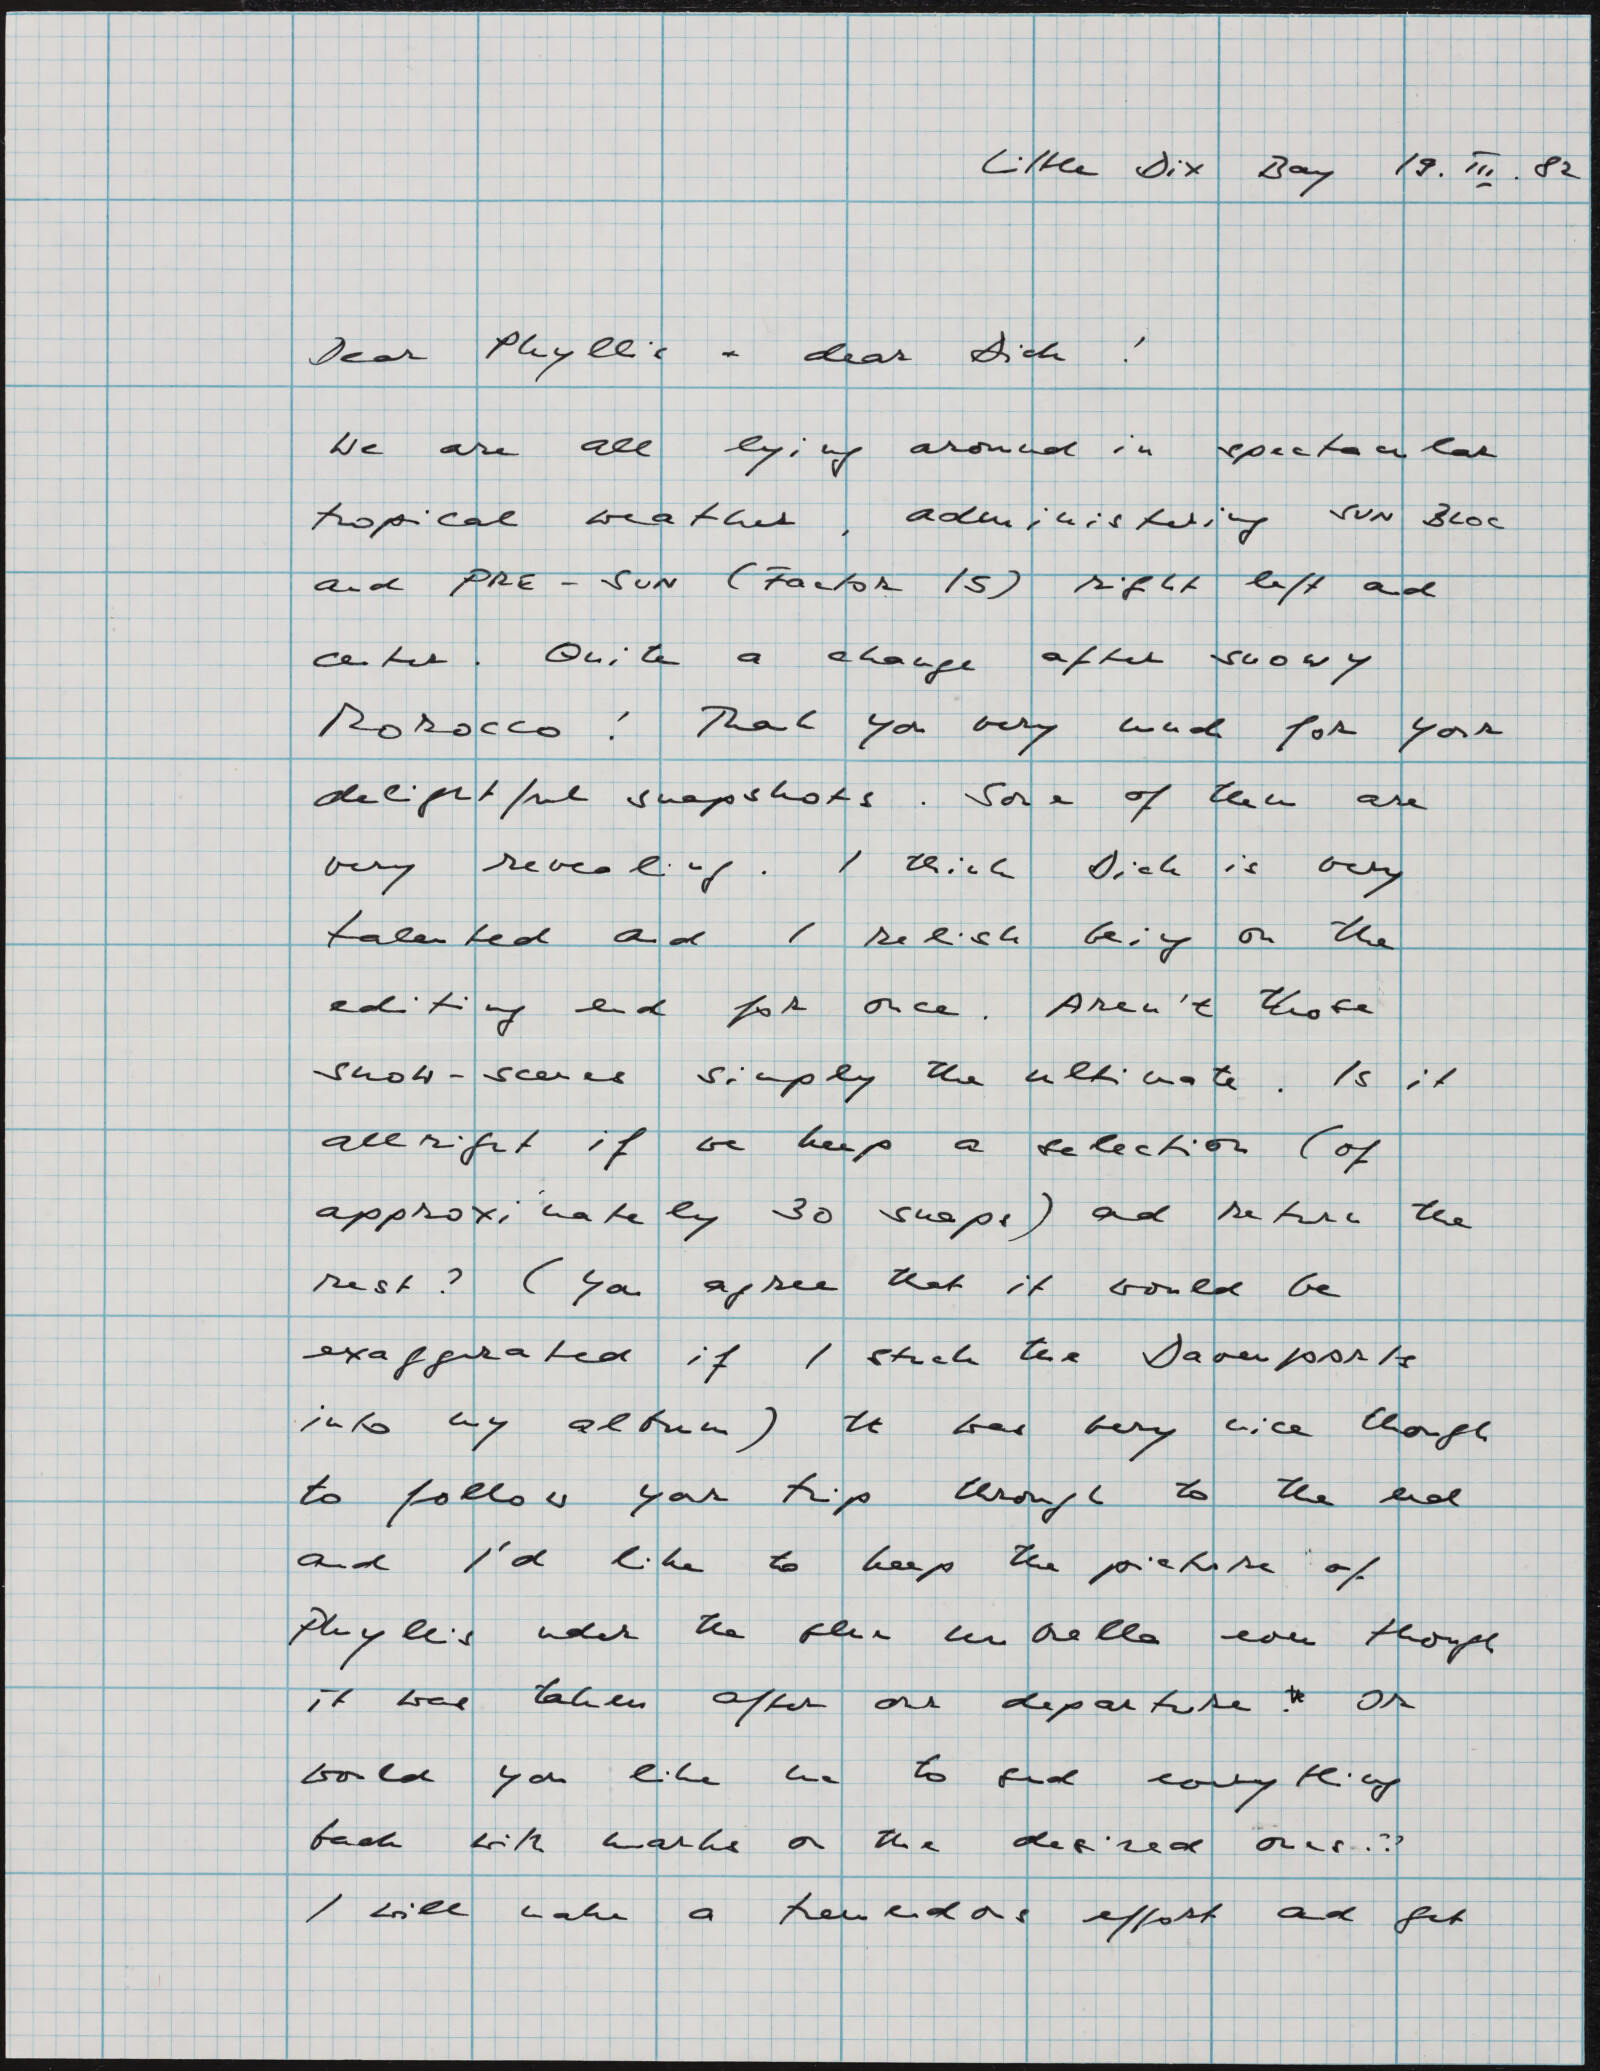 Little Dix Bay 19. III. 82
Dear Phyllis + dear Dick !
We are all lying around in spectacular
tropical weather, administering SUN BLOC
and PRE-SUN (Factor 15) right left and
center. Quite a change after snowy
MOROCCO! Thank you very much for your
delightful snapshots. Some of them are
very revealing. I think Dick is very
talented and I relish being on the
editing end for once. Aren't those
snow-scenes simply the ultimate. Is it
allright if we keep a selection (of
approximately 30 snaps) and return the
rest? (You agree that it would be
exaggerated if I stuck the Davenports
into my album) It was very nice though
to follow your trip through to the end
and I'd like to keep the picture of
Phyllis under the umbrella even though
it was taken after our departure. Or
would you like me to send everything
back with marks on the desired ones??
I will make a tremendous effort and get